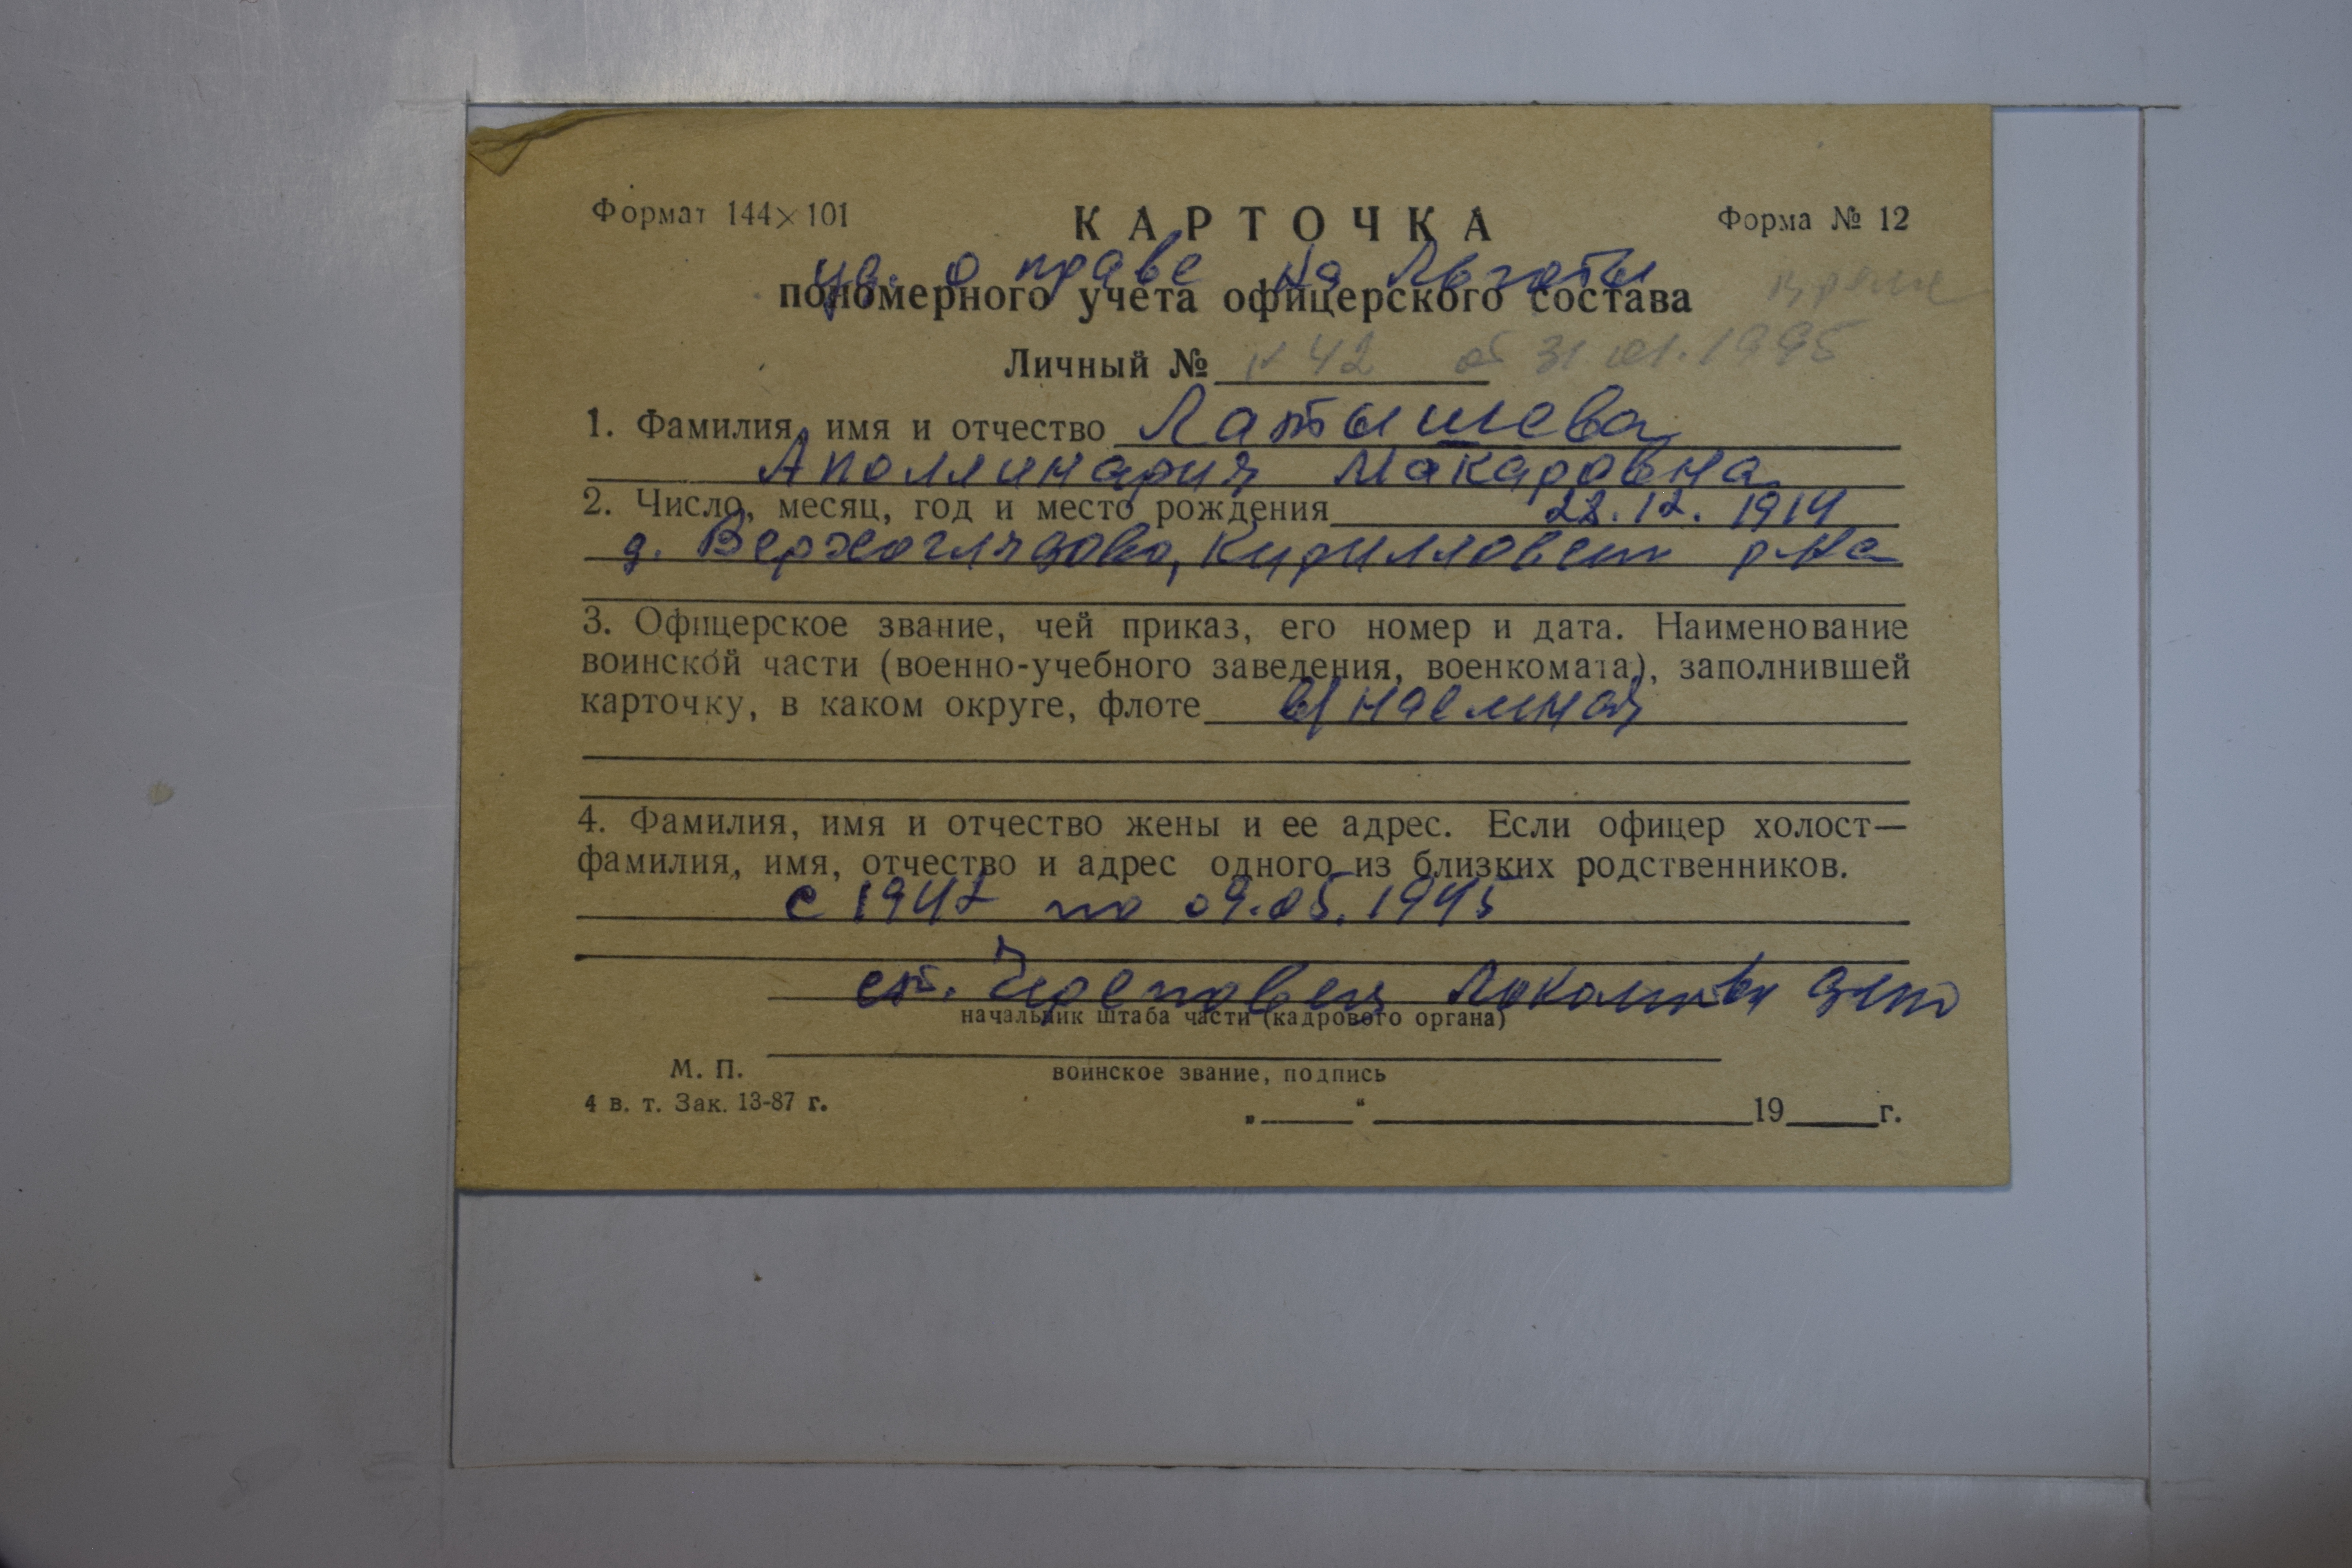 Формат 144×101
КАРТОЧКА
Форма № 12
уд. о праве на льготы
пономерного учета офицерского состава
Личный № N 42 от 31.01.1995
1. Фамилия, имя и отчество Латышева
Аполлинария Макаровна
2. Число, месяц, год и место рождения 28.12.1914
д. Верхоглядово, Кирилловск р-на
3. Офицерское звание, чей приказ, его номер и дата. Наименование
воинской части (военно-учебного заведения, военкомата), заполнившей
карточку, в каком округе, флоте в/наемная
4. Фамилия, имя и отчество жены и ее адрес. Если офицер холост—
фамилия, имя, отчество и адрес одного из близких родственников.
с 1942 по 09.05.1945
ст. Череповец Локомотивн депо
начальник штаба части (кадрового органа)
М. П.
воинское звание, подпись
4 в. т. Зак. 13-87 г.
„ “ 19 г.